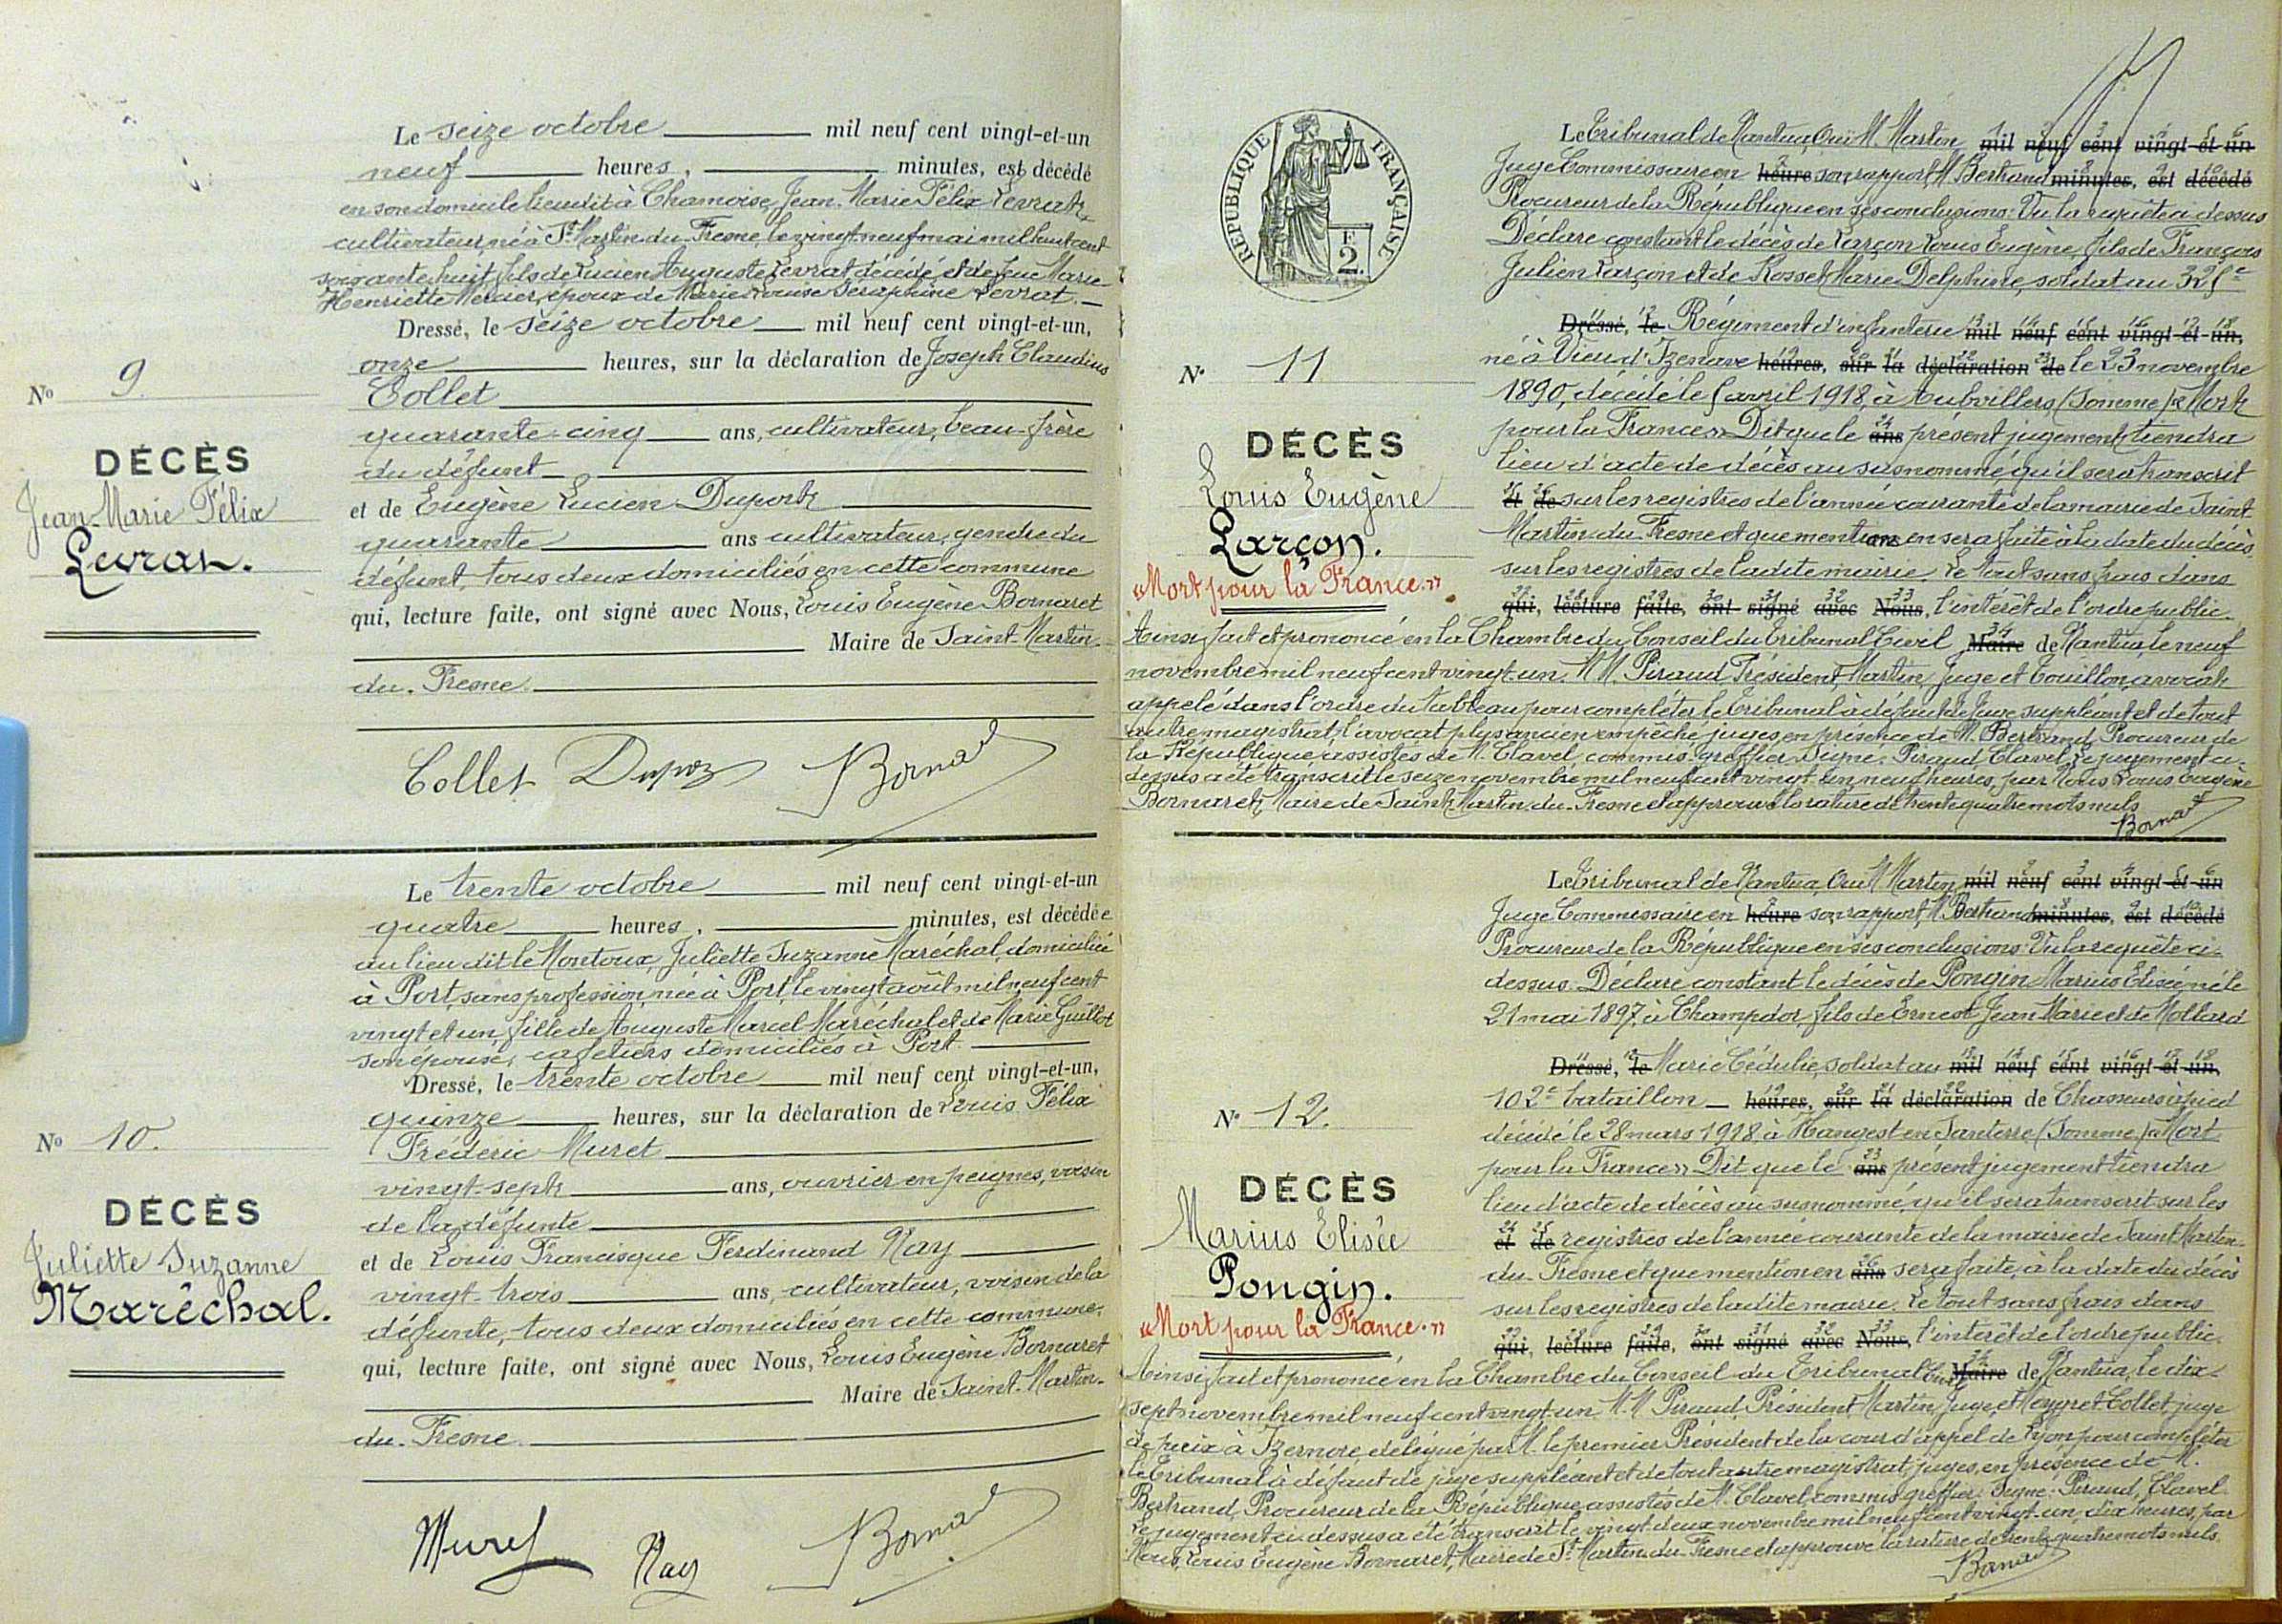 Le seize octobre mil neuf cent vingt-et-un
neuf heures, minutes, est décédé
en son domicile lieudit à Chamoise, Jean-Marie Félix Levrat,
cultivateur, né à St Martin-du-Fresne le vingt neuf mai mil huit cent
soixante huit, fils de Lucien Auguste Levrat décédé et de feue Marie
Henriette Mercier, époux de Marie Louise Séraphine Levrat.
Dressé, le seize octobre mil neuf cent vingt-et-un,
onze heures, sur la déclaration de Joseph Claudius
Collet
quarante-cinq ans, cultivateur, beau-frère
du défunt
et de Eugène Lucien Duport
quarante ans cultivateur, gendre du
défunt, tous deux domiciliés en cette commune
qui, lecture faite, ont signé avec Nous, Louis Eugène Bornaret
Maire de Saint-Martin-
du-Fresne.
No 9.
DÉCÈS
Jean-Marie Félix
Levrat.
Collet Bornaret
Le trente octobre mil neuf cent vingt-et-un
quatre heures, minutes, est décédée
au lieu dit le Montoux, Juliette Suzanne Maréchal, domiciliée
à Port, sans profession, née à Port, le vingt août mil neuf cent
vingt et un, fille de Auguste Marcel Maréchal et de Marie Guillot
son épouse, cafetiers domiciliés à Port.
Dressé, le trente octobre mil neuf cent vingt-et-un,
quinze heures, sur la déclaration de Louis Félix
Frédéric Muret
vingt-sept ans, ouvrier en peignes, voisin
de la défunte
et de Louis Francisque Ferdinand Nay
vingt-trois ans, cultivateur, voisin de la
défunte, tous deux domiciliés en cette commune,
qui, lecture faite, ont signé avec Nous, Louis Eugène Bornaret
Maire de Saint-Martin-
du-Fresne.
No 10.
DÉCÈS
Juliette Suzanne
Maréchal.
Muret Nay Bornaret
RÉPUBLIQUE FRANÇAISE
F
2.
Le Tribunal de Nantua, Ouï M. Martin mil neuf cent vingt-et-un
Juge Commissaire en heure son rapport, M Bertrand minutes, est décédé
Procureur de la République en ses conclusions: Vu la requête ci dessus
Déclare constant le décès de Larçon Louis Eugène, fils de François
Julien Larçon et de Rosset Marie Delphine, soldat au
Dressé, le Régiment d'infanterie mil neuf cent vingt-et-un,
né à Vieu d'Izenave heures, sur la déclaration de le 23 novembre
1890, décédé le 5 avril 1918, à Aubvillers (Somme) « Mort
pour la France » Dit que le ans présent jugement tiendra
lieu d'acte de décès au susnommé, qu'il sera transcrit
et de sur les registres de l'année courante de la mairie de Saint
Martin-du-Fresne et que mention ans en sera faite à la date du décès
sur les registres de ladite mairie. Le tout sans frais dans
qui, lecture faite, ont signé avec Nous, l'intérêt de l'ordre public.
Ainsi fait et prononcé en la Chambre du Conseil du Tribunal Civil Maire de Nantua, le neuf
novembre mil neuf cent vingt-un. M.M. Piraud Président, Martin, Juge et Touillon, avocat
appelé dans l'ordre du tableau pour compléter le Tribunal à défaut de Juge suppléant et de tout
autre magistrat, l'avocat plus ancien empêché, juges, en présence de M. Bertrand, Procureur de
la République, assistés de M. Clavel, commis-greffier. Signé: Piraud, Clavel. Le jugement ci-
dessus a été transcrit le seize novembre mil neuf cent vingt-un, neuf heures, par Nous Louis Eugène
Bornaret, Maire de Saint-Martin-du-Fresne et approuvé la rature de trente quatre mots nuls.
Bornaret
N° 11
DÉCÈS
Louis Eugène
Larçon.
« Mort pour la France. »
Le Tribunal de Nantua, Ouï M Martin mil neuf cent vingt-et-un
Juge Commissaire en heure son rapport, M. Bertrand minutes, est décédé
Procureur de la République en ses conclusions: Vu la requête ci-
dessus. Déclare constant le décès de Pongin Marius Elisée, né le
21 mai 1897, à Champdor, fils de Ernest Jean Marie et de Mollard
Dressé, le Marie Cédulie, soldat au mil neuf cent vingt-et-un,
102e bataillon heures, sur la déclaration de Chasseurs à pied
décédé le 28 mars 1918 à Hangest en Santerre (Somme) « Mort
pour la France » Dit que le ans présent jugement tiendra
lieu d'acte de décès au susnommé, qu'il sera transcrit sur les
et de registres de l'année courante de la mairie de Saint-Martin-
du-Fresne et que mention en ans sera faite, à la date du décès
sur les registres de ladite mairie. Le tout sans frais dans
qui, lecture faite, ont signé avec Nous, l'intérêt de l'ordre public.
Ainsi fait et prononcé en la Chambre du Conseil du Tribunal Civil Maire de Nantua, le dix-
sept novembre mil neuf cent vingt-un M.M Piraud, Président, Martin, Juge, et Collet juge
de paix à Izernore, délégué par M. le premier Président de la cour d'appel de Lyon pour compléter
le Tribunal à défaut de juge suppléant et de tout autre magistrat, juges, en présence de M.
Bertrand, Procureur de la République, assistés de M. Clavel, commis-greffier. Signé: Piraud, Clavel.
Le jugement ci dessus a été transcrit le vingt deux novembre mil neuf cent vingt-un, dix heures, par
Nous, Louis Eugène Bornaret, Maire de St Martin-du-Fresne et approuvé la rature de trente quatre mots nuls.
Bornaret
N° 12.
DÉCÈS
Marius Elisée
Pongin.
« Mort pour la France. »